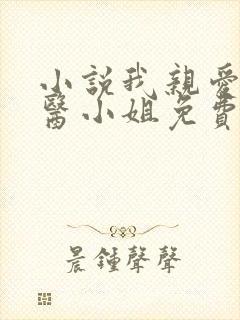 小說我親愛
醫小姐免費
晨鍾聲聲